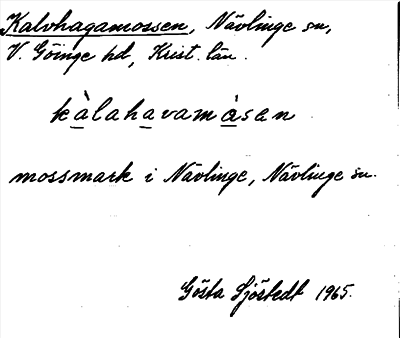 Kalvhagamossen, Nävlinge sn,
V. Göinge hd, Krist. län.
kàlahavamåsan
mossmark i Nävlinge, Nävlinge sn.
Gösta Sjöstedt 1965.